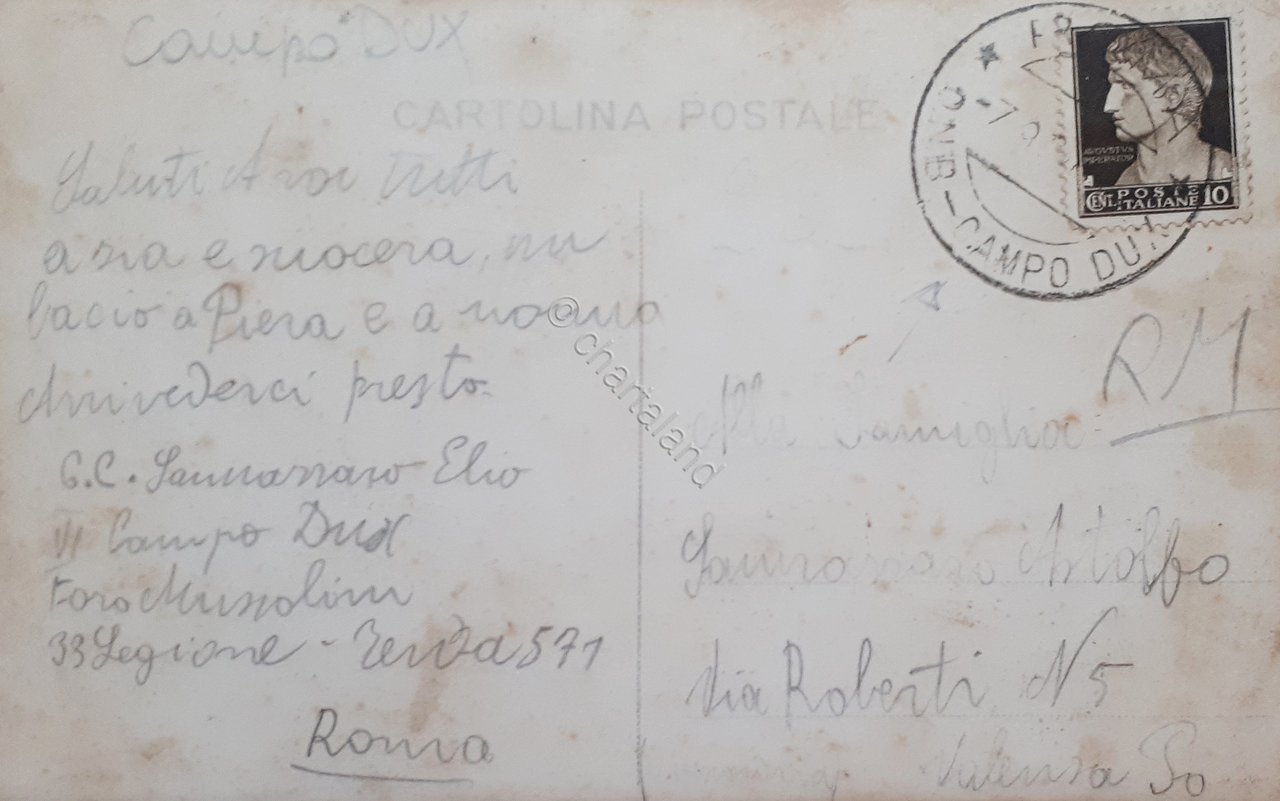 Campo DUX
CARTOLINA POSTALE
Saluti A voi tutti
a zia e suocera, un
bacio a Piera e a nonno
Arrivederci presto.
C.C. Sannazzaro Elio
VI Campo Dux
Foro Mussolini
33 Legione - Tenda 571
Roma
ONB - CAMPO DUX
AVGVSTVS
IMPERATOR
POSTE
CENT. ITALIANE 10
RM
Alla Famiglia
Sannazzaro Astolfo
Via Roberti N 5
Valenza Po
© chartaland